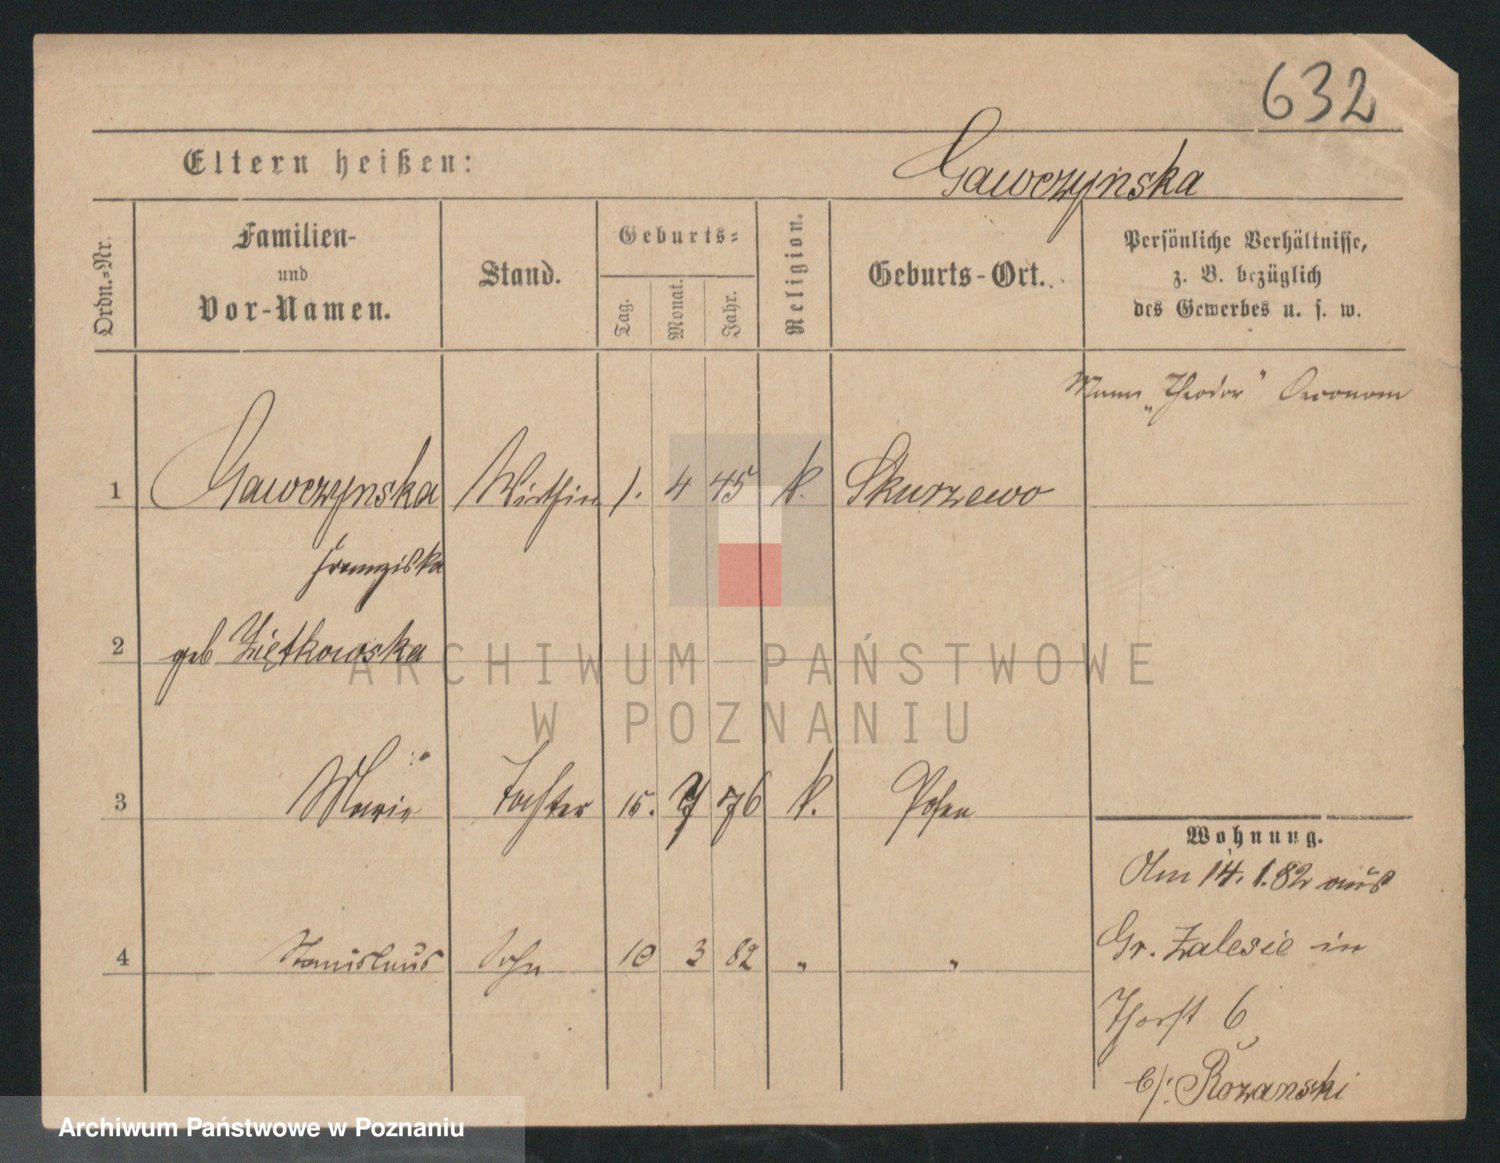 632
Eltern heißen:
Gawczynska
Ordn.-Nr.
Familien-
und
Vor-Namen.
Stand.
Geburts-
Tag.
Monat.
Jahr.
Religion.
Geburts-Ort.
Persönliche Verhältnisse,
z. B. bezüglich
des Gewerbes u. s. w.
Mann „Theodor" Oeconom
1 Gawczynska Wirthin 1. 4 45 k. Skurzewo
Franziska
2 geb Ziętkowska
3 Marie Tochter 15. 7 76 k. Posen
Wohnung.
Am 14.1.82 aus
4 Stanislaus Sohn 10 3 82 " "
Gr. Zalesie in
Thorst 6
b/: Rozanski
ARCHIWUM PAŃSTWOWE
W POZNANIU
Archiwum Państwowe w Poznaniu